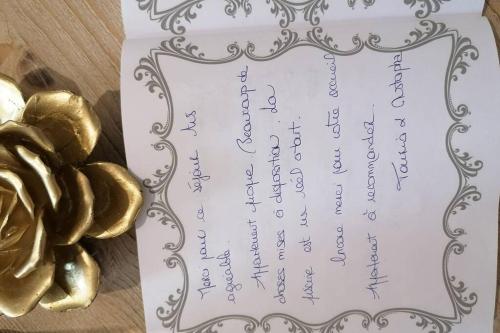 Merci pour ce séjour très
agréable.
Appartement unique. Beaucoup de
choses mises à disposition. La
piscine est un réel atout.
Encore merci pour votre accueil
Appartement à recommander.
Tania & Christophe